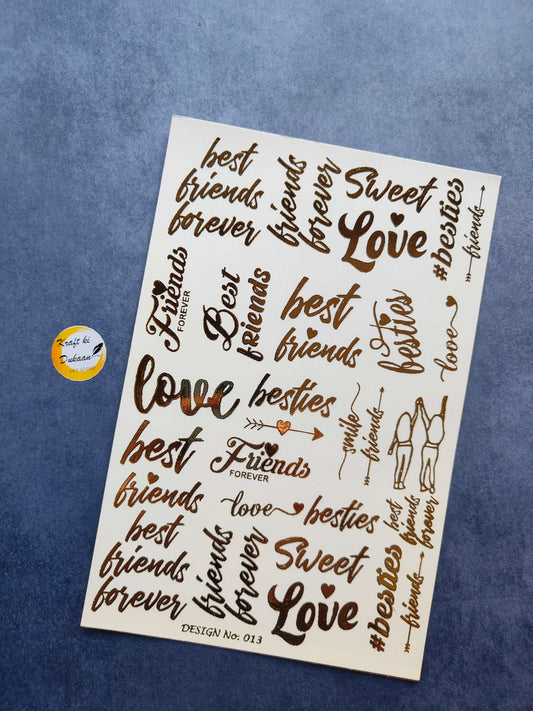 best
friends
forever
friends
forever
Sweet
Love
#besties
friends
Friends
FOREVER
Best
fRiends
best
friends
besties
love
love
besties
smile
friends
best
friends
Friends
FOREVER
love
besties
best
friends
forever
best
friends
forever
friends
forever
Sweet
Love
#besties
friends
DESIGN No: 013
Kraft ki
Dukaan